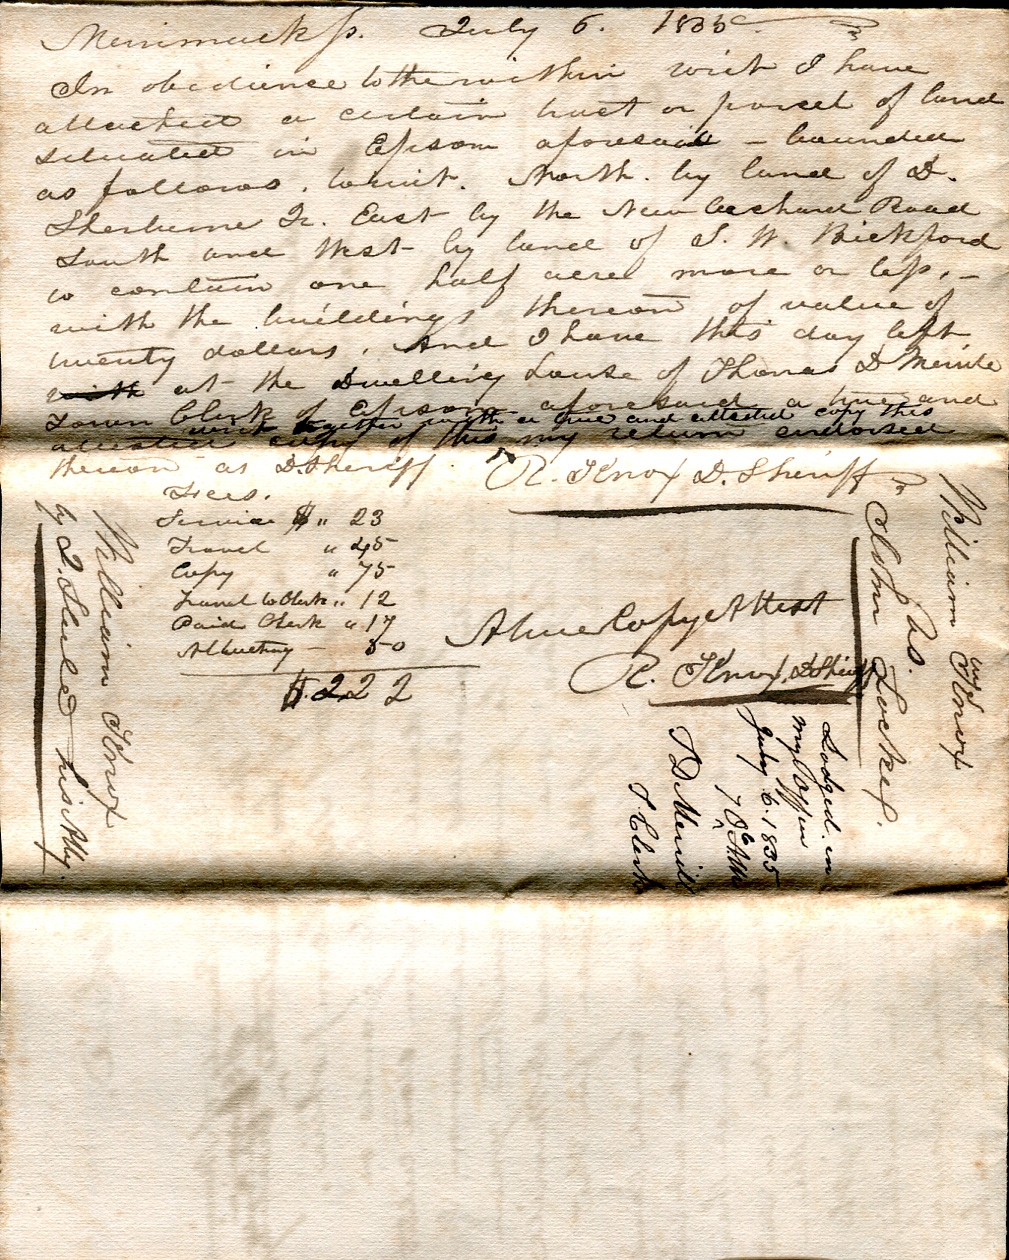 Merrimack ss. July 6. 1835
In obedience to the within writ I have
attached a certain tract or parcel of land
situated in Epsom aforesaid - bounded
as follows, to wit. North. by land of D.
Sherburne Jr. East by the New Orchard Road
South and West by land of S. W. Bickford
to contain one half acre more or less, -
with the buildings thereon of value of
twenty dollars. And I have this day left
with at the Dwelling house of Thomas D Merrill
Town Clerk of Epsom aforesaid a true and
writ together with a true and attested copy this
attested copy of this my return endorsed
thereon as D. Sheriff. R. Knox D. Sheriff
Fees.
Service $ " 23
Travel " 45
Copy " 75
Travel to Clerk " 12
Paid Clerk " 17
Attesting - 50
$ 2 22
A true Copy Attest
R. Knox, D Sheriff
William Knox
vs
John Locke
Lodged in
my Office
July 6. 1835
7 Oc AM
T D Merrill
T Clerk
William Knox
by his Atty.